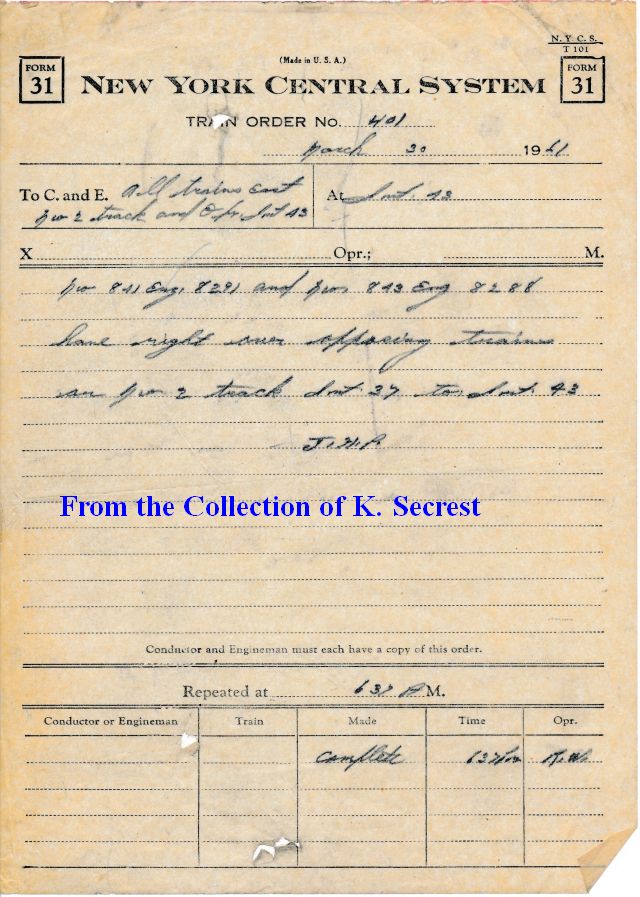 N. Y. C. S.
T 101
(Made in U. S. A.)
FORM 31
NEW YORK CENTRAL SYSTEM
FORM 31
TRAIN ORDER No. 401
March 30 1961
To C. and E. All trains east
No 2 track and Opr. Int 43
At Int. 43
X Opr.; M.
No 841 Eng. 8291 and No. 843 Eng 8288
have right over opposing trains
on No 2 track Int. 37 to Int. 43
From the Collection of K. Secrest
Conductor and Engineman must each have a copy of this order.
Repeated at 637 M.
Conductor or Engineman Train Made Time Opr.
Complete 637